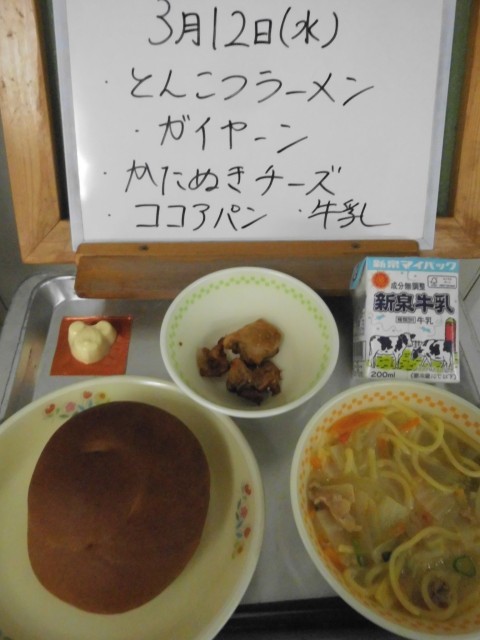 3月12日(水)
・とんこつラーメン
・ガイヤーン
・かたぬきチーズ
・ココアパン ・牛乳
新泉マイパック
成分無調整
新泉牛乳
種類別 牛乳
200ml